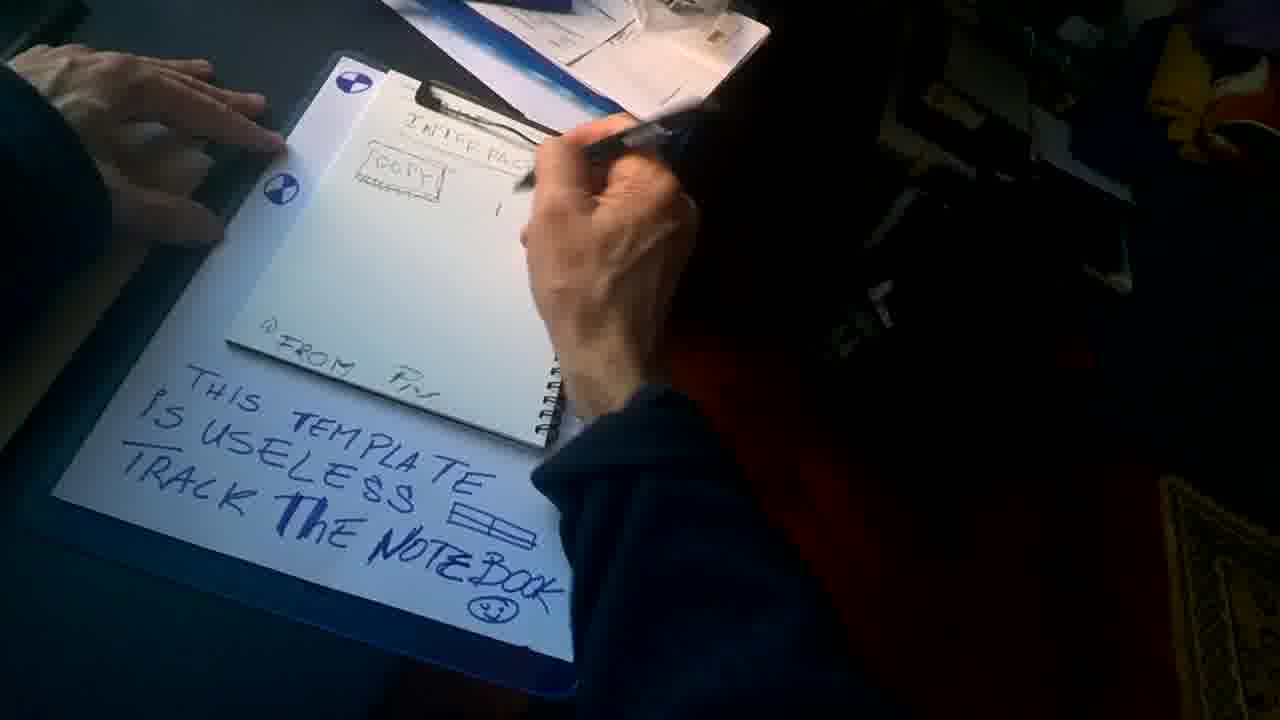 INTERFAC
COPY!
FROM
THIS TEMPLATE
IS USELESS
TRACK THE NOTEBOOK